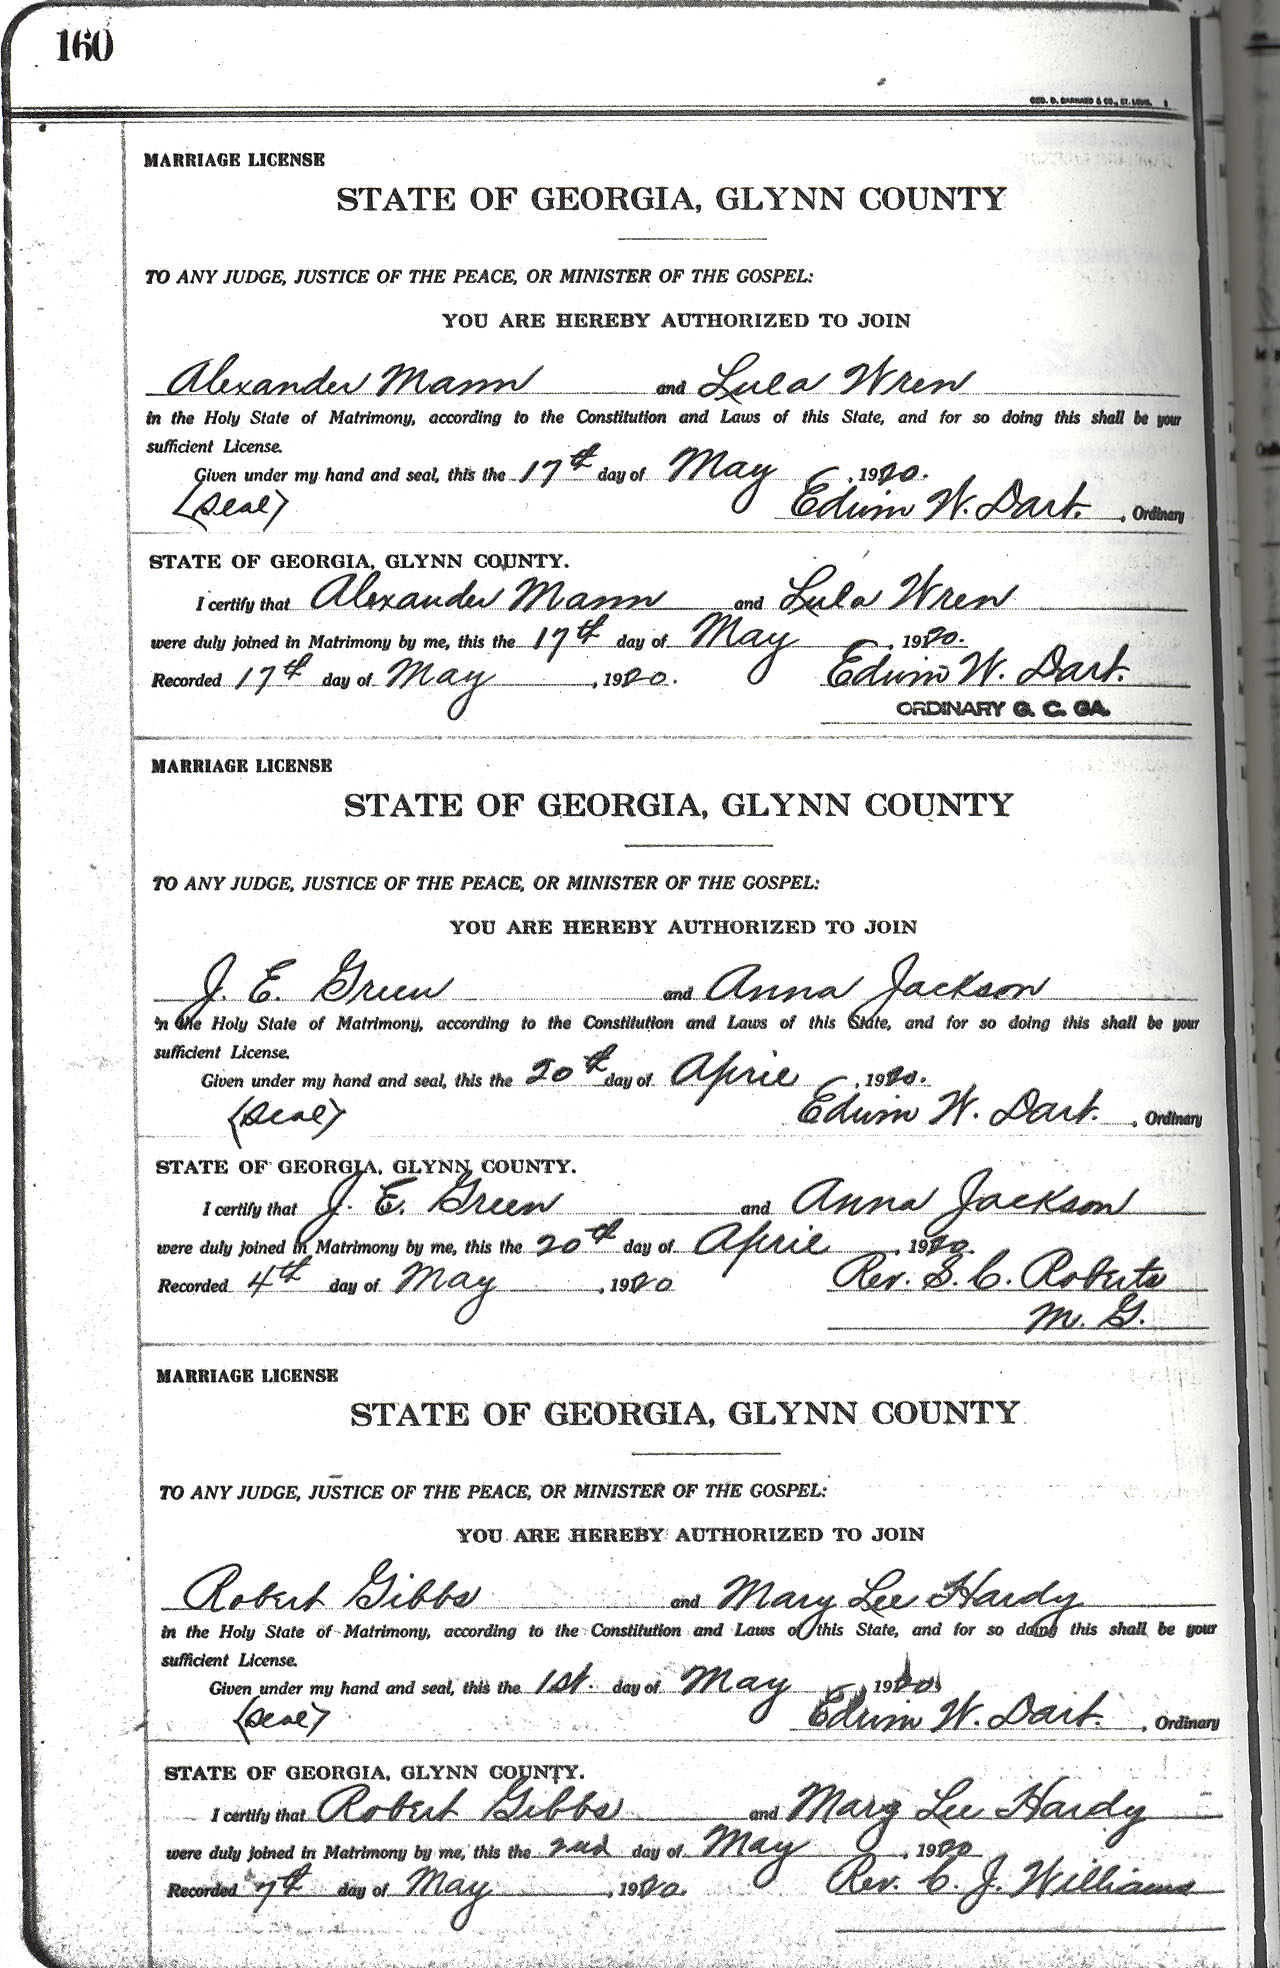 160
GEO. D. BARNARD & CO., ST. LOUIS.
MARRIAGE LICENSE
STATE OF GEORGIA, GLYNN COUNTY
TO ANY JUDGE, JUSTICE OF THE PEACE, OR MINISTER OF THE GOSPEL:
YOU ARE HEREBY AUTHORIZED TO JOIN
Alexander Mann and Lula Wren
in the Holy State of Matrimony, according to the Constitution and Laws of this State, and for so doing this shall be your
sufficient License.
Given under my hand and seal, this the 17th day of May, 1920.
(Seal) Edwin W. Dart., Ordinary
STATE OF GEORGIA, GLYNN COUNTY.
I certify that Alexander Mann and Lula Wren
were duly joined in Matrimony by me, this the 17th day of May, 1920.
Recorded 17th day of May, 1920. Edwin W. Dart.
ORDINARY G. C. GA.
MARRIAGE LICENSE
STATE OF GEORGIA, GLYNN COUNTY
TO ANY JUDGE, JUSTICE OF THE PEACE, OR MINISTER OF THE GOSPEL:
YOU ARE HEREBY AUTHORIZED TO JOIN
J. E. Green and Anna Jackson
in the Holy State of Matrimony, according to the Constitution and Laws of this State, and for so doing this shall be your
sufficient License.
Given under my hand and seal, this the 20th day of April, 1920.
(Seal) Edwin W. Dart., Ordinary
STATE OF GEORGIA, GLYNN COUNTY.
I certify that J. E. Green and Anna Jackson
were duly joined in Matrimony by me, this the 20th day of April, 1920.
Recorded 4th day of May, 1920 Rev. S. C. Roberts
M. G.
MARRIAGE LICENSE
STATE OF GEORGIA, GLYNN COUNTY
TO ANY JUDGE, JUSTICE OF THE PEACE, OR MINISTER OF THE GOSPEL:
YOU ARE HEREBY AUTHORIZED TO JOIN
Robert Gibbs and Mary Lee Hardy
in the Holy State of Matrimony, according to the Constitution and Laws of this State, and for so doing this shall be your
sufficient License.
Given under my hand and seal, this the 1st. day of May, 1920
(Seal) Edwin W. Dart., Ordinary
STATE OF GEORGIA, GLYNN COUNTY.
I certify that Robert Gibbs and Mary Lee Hardy
were duly joined in Matrimony by me, this the 2nd day of May, 1920
Recorded 7th day of May, 1920. Rev. C. J. Williams